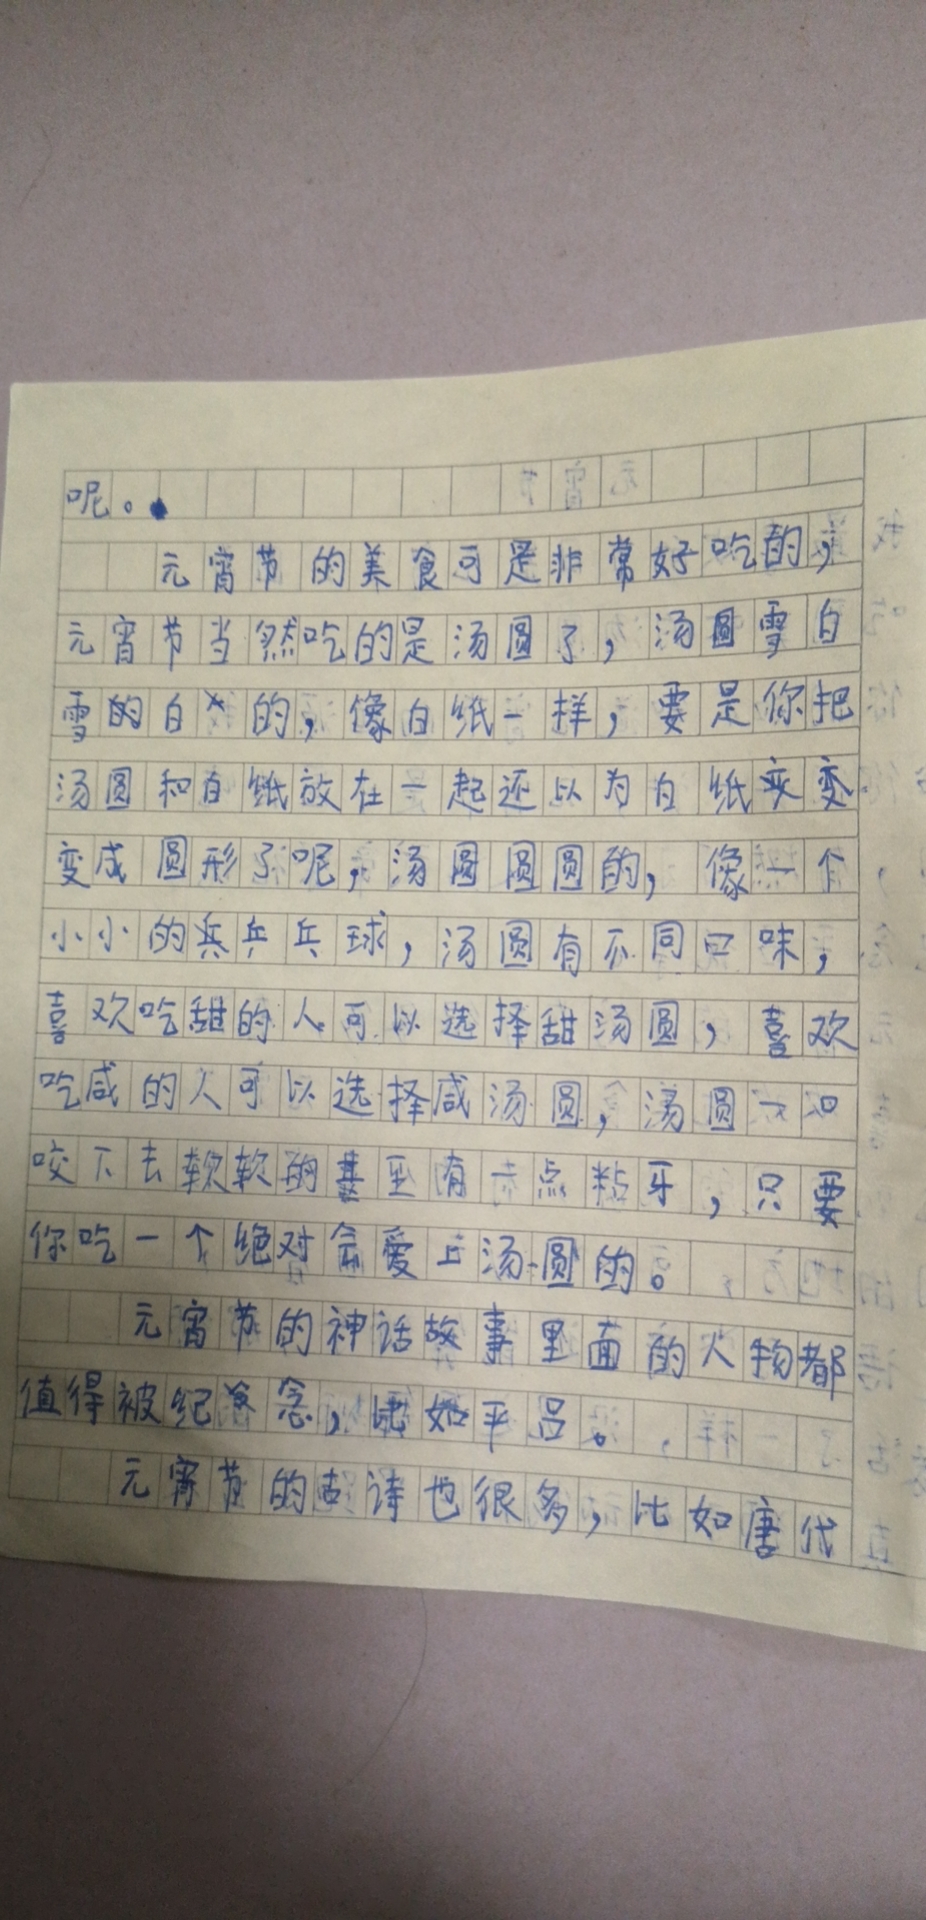 呢。
元宵节的美食可是非常好吃的，
元宵节当然吃的是汤圆了，汤圆雪白
雪的白的，像白纸一样，要是你把
汤圆和白纸放在一起还以为白纸变变
变成圆形了呢，汤圆圆圆的，像一个
小小的兵乒乓球，汤圆有不同口味，
喜欢吃甜的人可以选择甜汤圆，喜欢
吃咸的人可以选择咸汤圆，汤圆一口
咬下去软软的甚至有一点粘牙，只要
你吃一个绝对会爱上汤圆的。
元宵节的神话故事里面的人物都
值得被纪念，比如平吕。
元宵节的古诗也很多，比如唐代